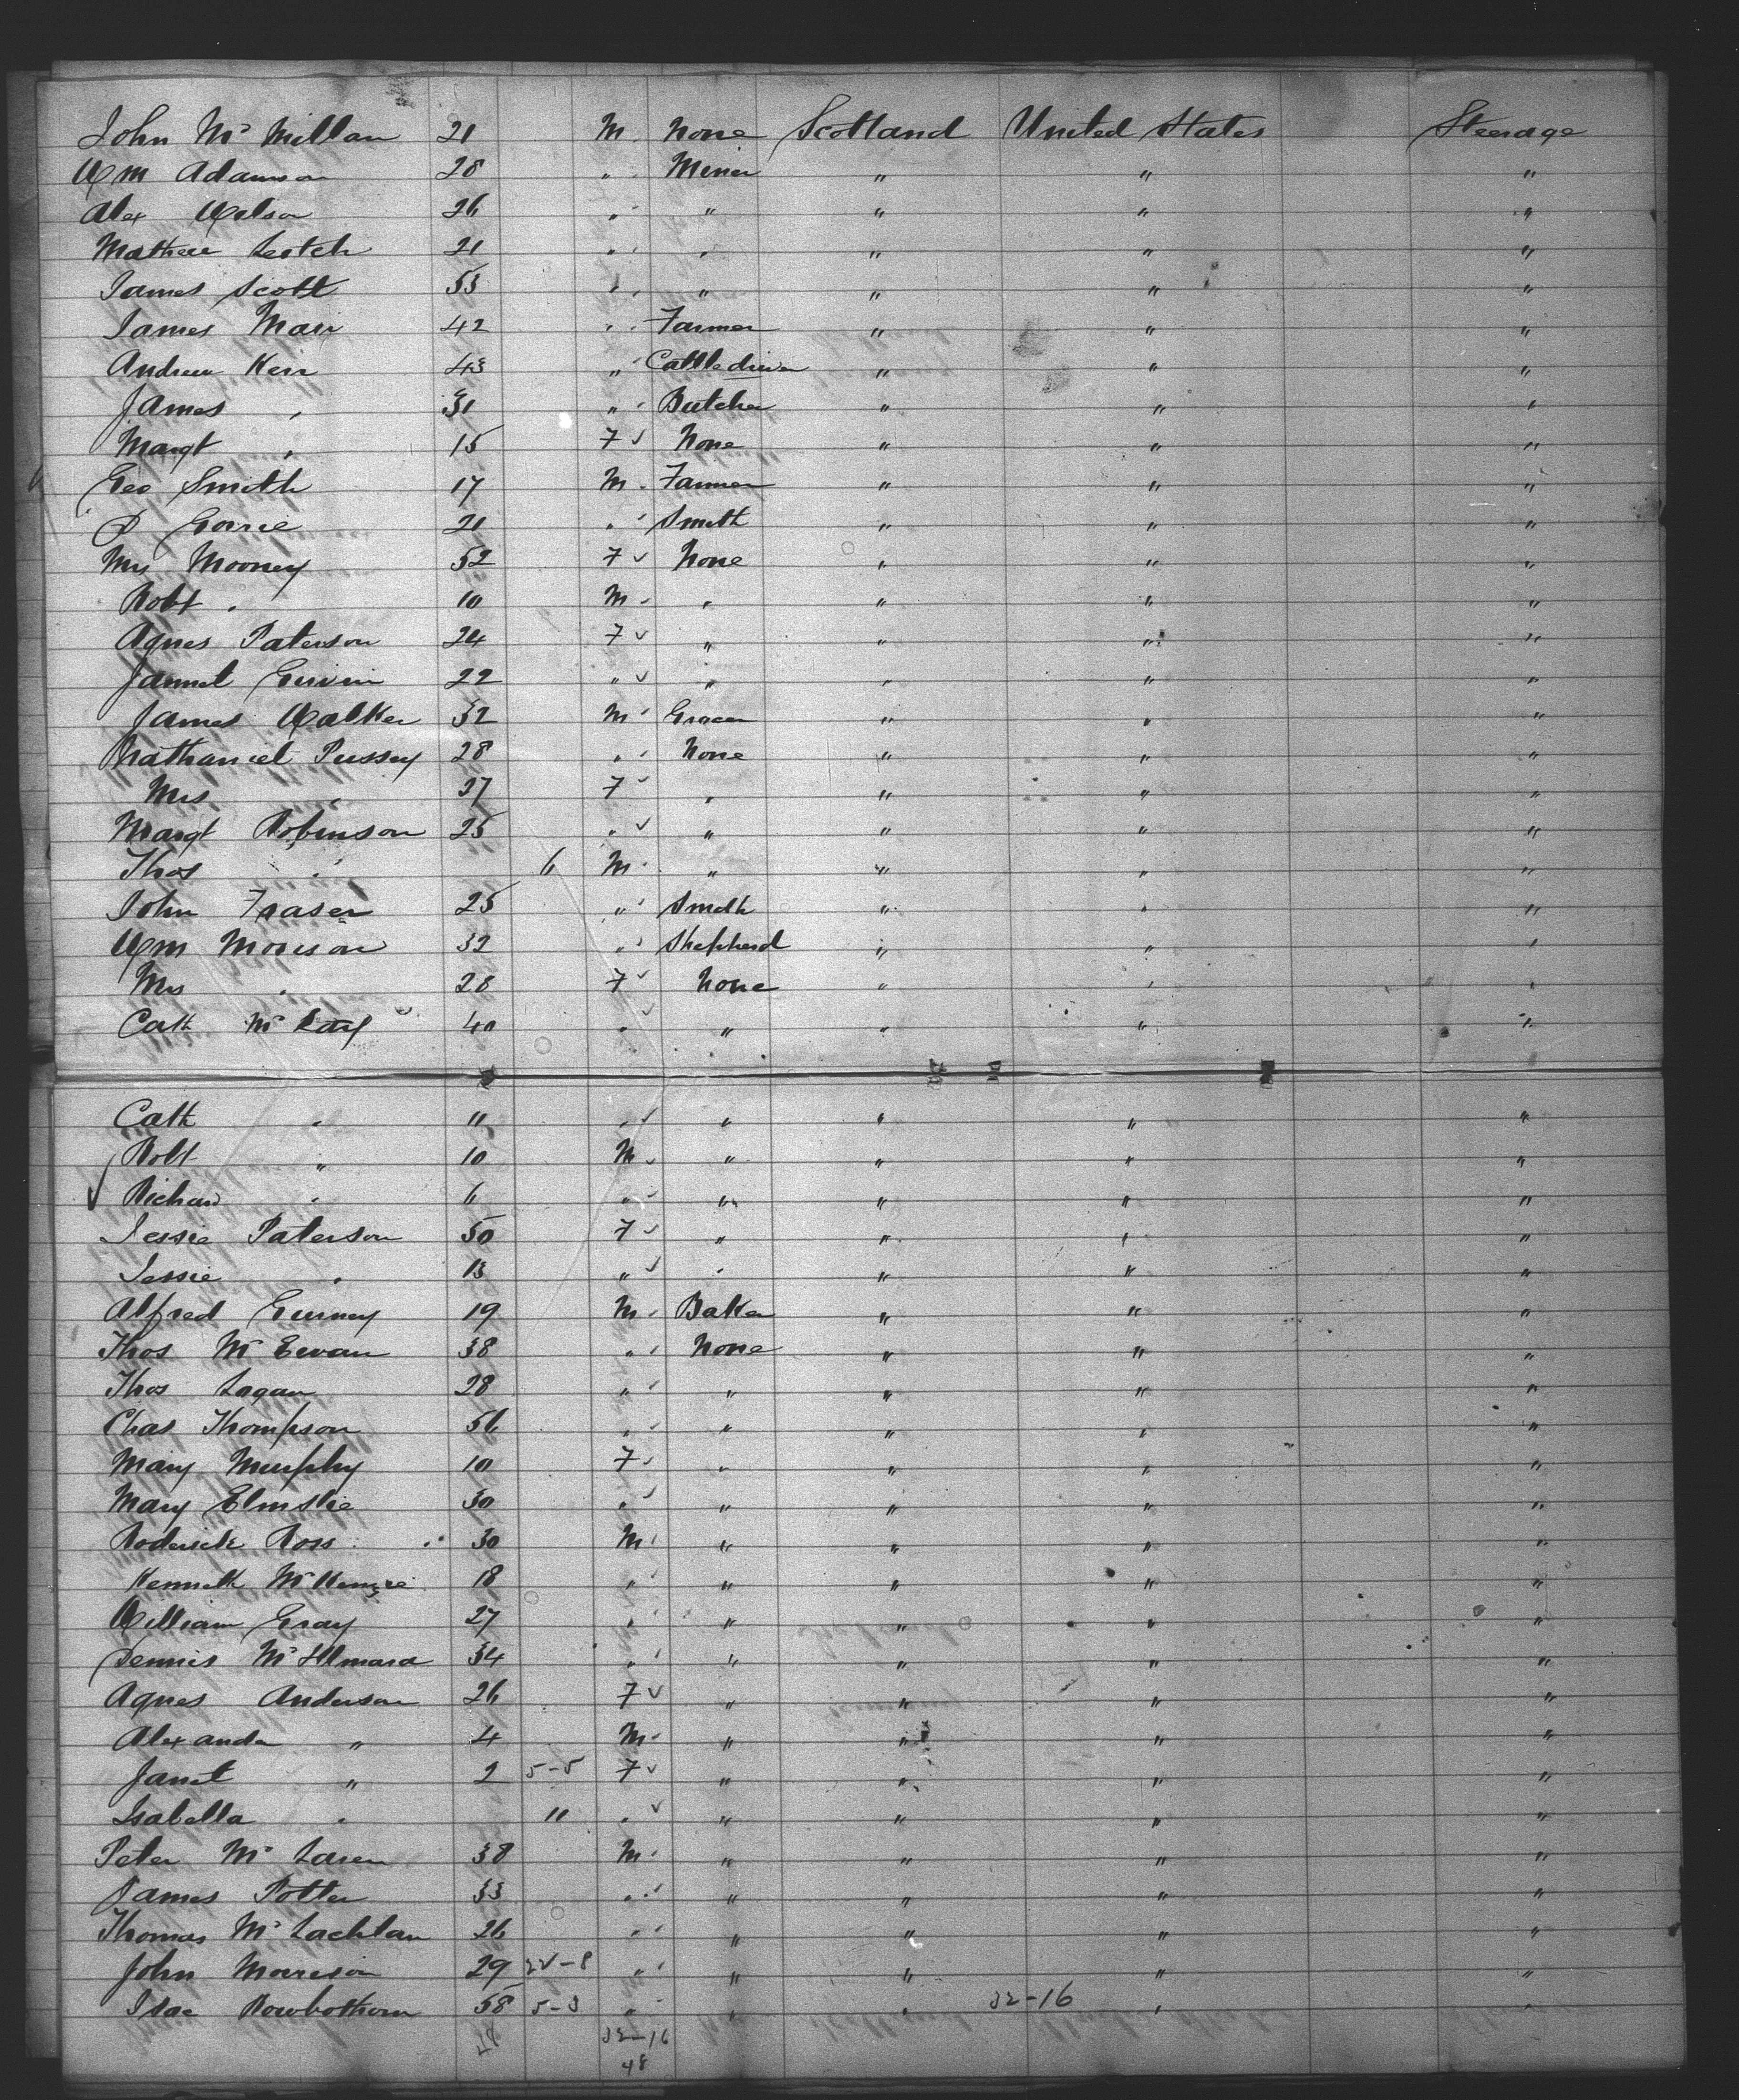 John Mc Millan 21 M. None Scotland United States Steerage
Wm Adamson 28 " Miner " " "
Alex Wilson 26 " " " " "
Mathew Leotch 21 " " " " "
James Scott 53 " " " " "
James Mair 42 " Farmer " " "
Andrew Kerr 43 " Cattledriver " " "
James " 31 " Butcher " " "
Margt " 15 F None " " "
Geo Smith 17 M. Farmer " " "
D Gorrie 21 " Smith " " "
Mrs Mooney 52 F None " " "
Robt " 10 M " " " "
Agnes Paterson 24 F " " " "
Jannet 22 " " " " "
James Walker 32 M Grocer " " "
Nathaniel Pussey 28 " None " " "
Mrs " 27 F " " " "
Margt Robinson 25 " " " " "
Thos " 6 M " " " "
John Fraser 25 " Smith " " "
Wm Morison 32 " Shepherd " " "
Mrs " 28 F None " " "
Cath Mc 40 " " " " "
Cath " 11 " " " " "
Robt " 10 M " " " "
Richard " 6 " " " " "
Jessie Paterson 50 F " " " "
Jessie " 13 " " " " "
Alfred Gurney 19 M Baker " " "
Thos Mc Ewan 38 " None " " "
Thos Logan 28 " " " " "
Chas Thompson 56 " " " " "
Mary Murphy 10 F " " " "
Mary Elmslie 30 " " " " "
Roderick Ross 30 M " " " "
Kenneth Mc Kenzie 18 " " " " "
William Gray 27 " " " " "
Dennis Mc 34 " " " " "
Agnes Anderson 26 F " " " "
Alexander " 4 M " " " "
Janet " 2 5-5 F " " " "
Isabella " 11 " " " " "
Peter Mc Laren 38 M " " " "
James Potter 33 " " " " "
Thomas Mc Lachlan 26 " " " " "
John Morrison 29 22-8 " " " " "
Isac Rowbothom 58 5-3 " " " 32-16 " "
32-16
48